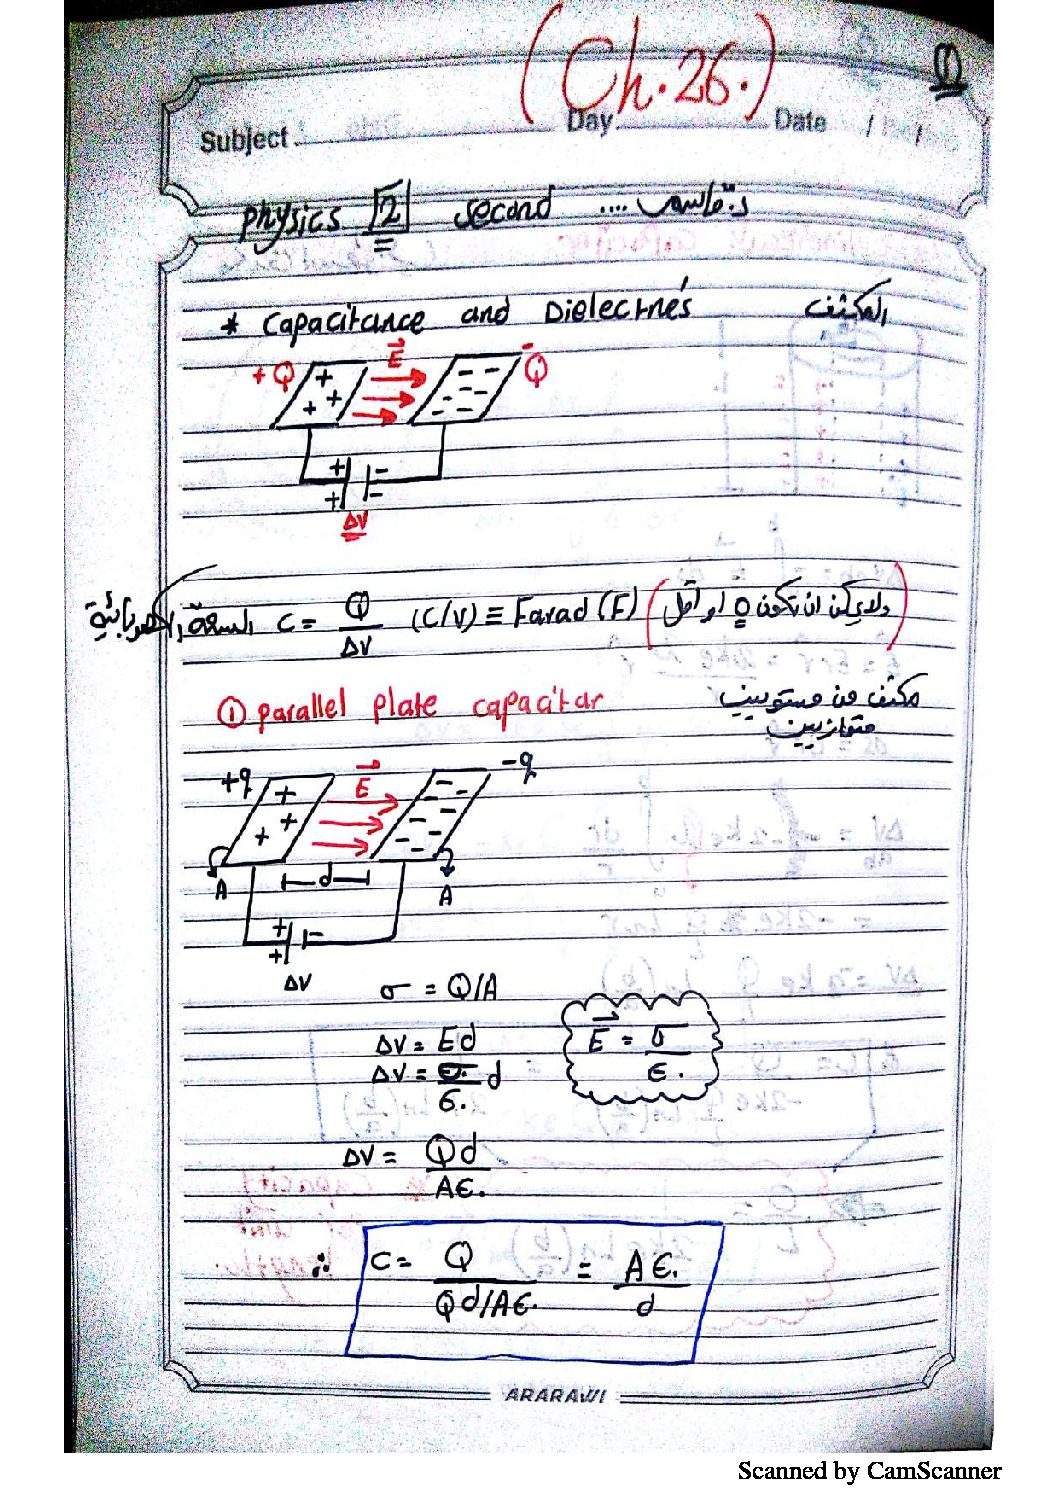 (Ch.26.)
①
Subject Day Date / /
physics [2] second .... د. قاسم
* Capacitance and Dielectrics المكثف
+Q E -Q
+ + + - - - - - - -
+ -
+ -
ΔV
السعة الكهربائية C = Q/ΔV (C/V) ≡ Farad (F) (ولا يمكن ان تكون 0 او اقل)
① parallel plate capacitar مكثف من مستويين
متوازيين
+q E -q
+ + + - - - - - - -
A d A
+ -
+
ΔV
σ = Q/A
ΔV = Ed E = σ/ϵ.
ΔV = σ/ϵ. d
ΔV = Qd/Aϵ.
∴ C = Q/Qd/Aϵ. = Aϵ./d
ARARAWI
Scanned by CamScanner